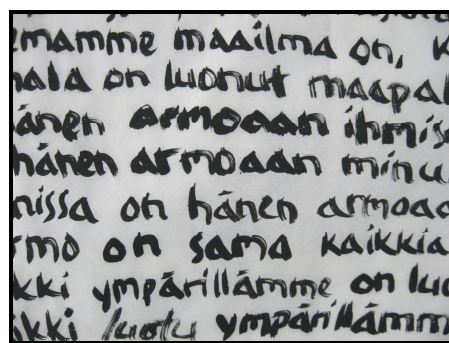 emamme maailma on, k
ala on luonut maapal
änen armoaan ihmis
hänen armoaan minu
nissa on hänen armoaa
rmo on sama kaikkia
kki ympärillämme on luo
ikki luotu ympärillämm